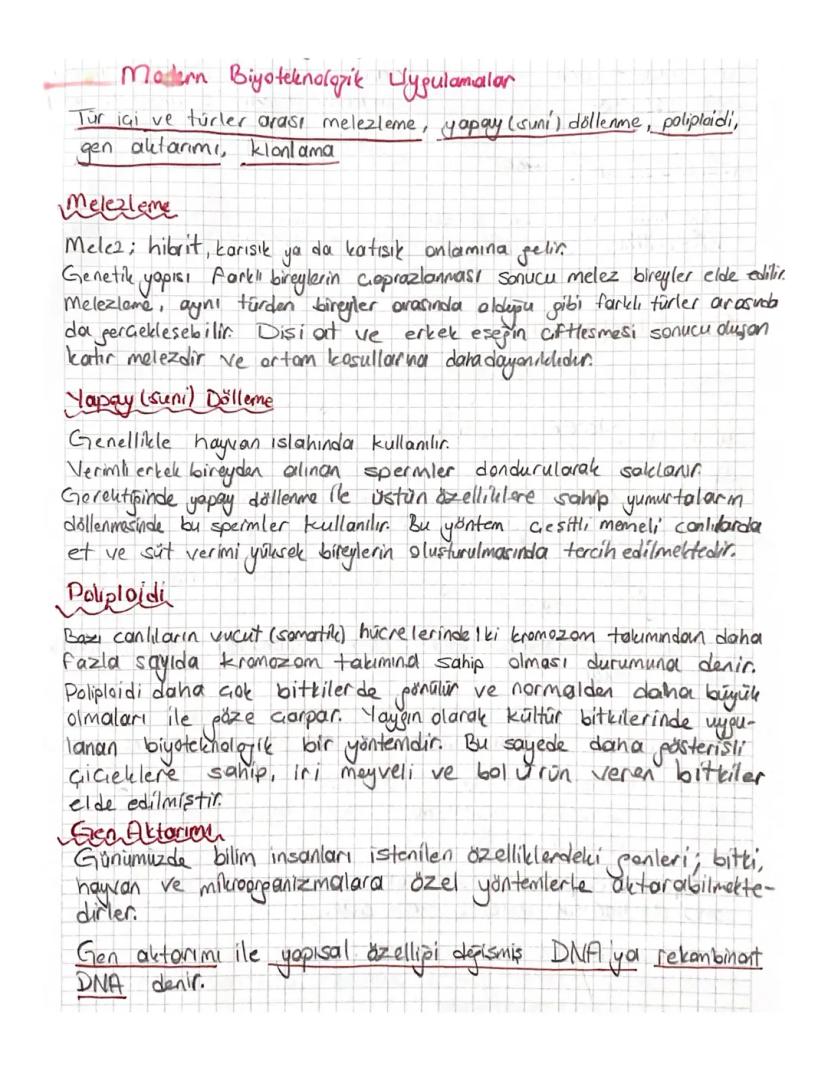 Modern Biyoteknolojik Uygulamalar
Tür içi ve türler arası melezleme, yapay (suni) döllenme, poliploidi,
gen aktarımı, klonlama
Melezleme
Melez; hibrit, karışık ya da katışık anlamına gelir.
Genetik yapısı farklı bireylerin çaprazlanması sonucu melez bireyler elde edilir.
Melezleme, aynı türden bireyler arasında olduğu gibi farklı türler arasında
da gerçekleşebilir. Dişi at ve erkek eşeğin çiftleşmesi sonucu oluşan
katır melezdir ve ortam koşullarına daha dayanıklıdır.
Yapay (suni) Dölleme
Genellikle hayvan ıslahında kullanılır.
Verimli erkek bireyden alınan spermler dondurularak saklanır.
Gerektiğinde yapay döllenme ile üstün özelliklere sahip yumurtaların
döllenmesinde bu spermler kullanılır. Bu yöntem çeşitli memeli canlılarda
et ve süt verimi yüksek bireylerin oluşturulmasında tercih edilmektedir.
Poliploidi
Bazı canlıların vucut (somatik) hücrelerinde iki kromozom takımından daha
fazla sayıda kromozom takımına sahip olması durumuna denir.
Poliploidi daha çok bitkilerde görülür ve normalden daha büyük
olmaları ile göze çarpar. Yaygın olarak kültür bitkilerinde uygu-
lanan biyoteknolojik bir yöntemdir. Bu sayede daha gösterişli
çiçeklere sahip, iri meyveli ve bol ürün veren bitkiler
elde edilmiştir.
Gen Aktarımı
Günümüzde bilim insanları istenilen özelliklerdeki genleri; bitki,
hayvan ve mikroorganizmalara özel yöntemlerle aktarabilmekte-
dirler.
Gen aktarımı ile yapısal özelliği değişmiş DNA'ya rekombinant
DNA denir.